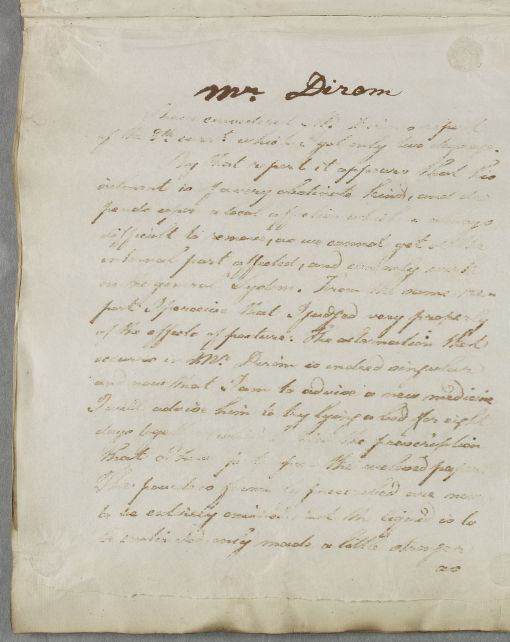 Mr. Dirom
I have considered Mr. Dirom's report
of the 9th currt. which I got only two days ago.
By that report it appears that his
ailment is of a very obstinate kind, and de
pends upon a local affection which is always
difficult to remove, as we cannot get at the
internal part affected, and can only work
on the general System. From the same re
port I perceive that I judged very properly
of the effects of posture. The alternation that
occurs in Mr. Dirom is indeed singular
and now that I am to advise a new medicine
I will advise him to try lying a bed for eight
days the prescription
that I have for the inclosed paper.
The powders formerly prescribed are now
to be entirely omitted, but the liquid is to
be continued only made a little stronger
as